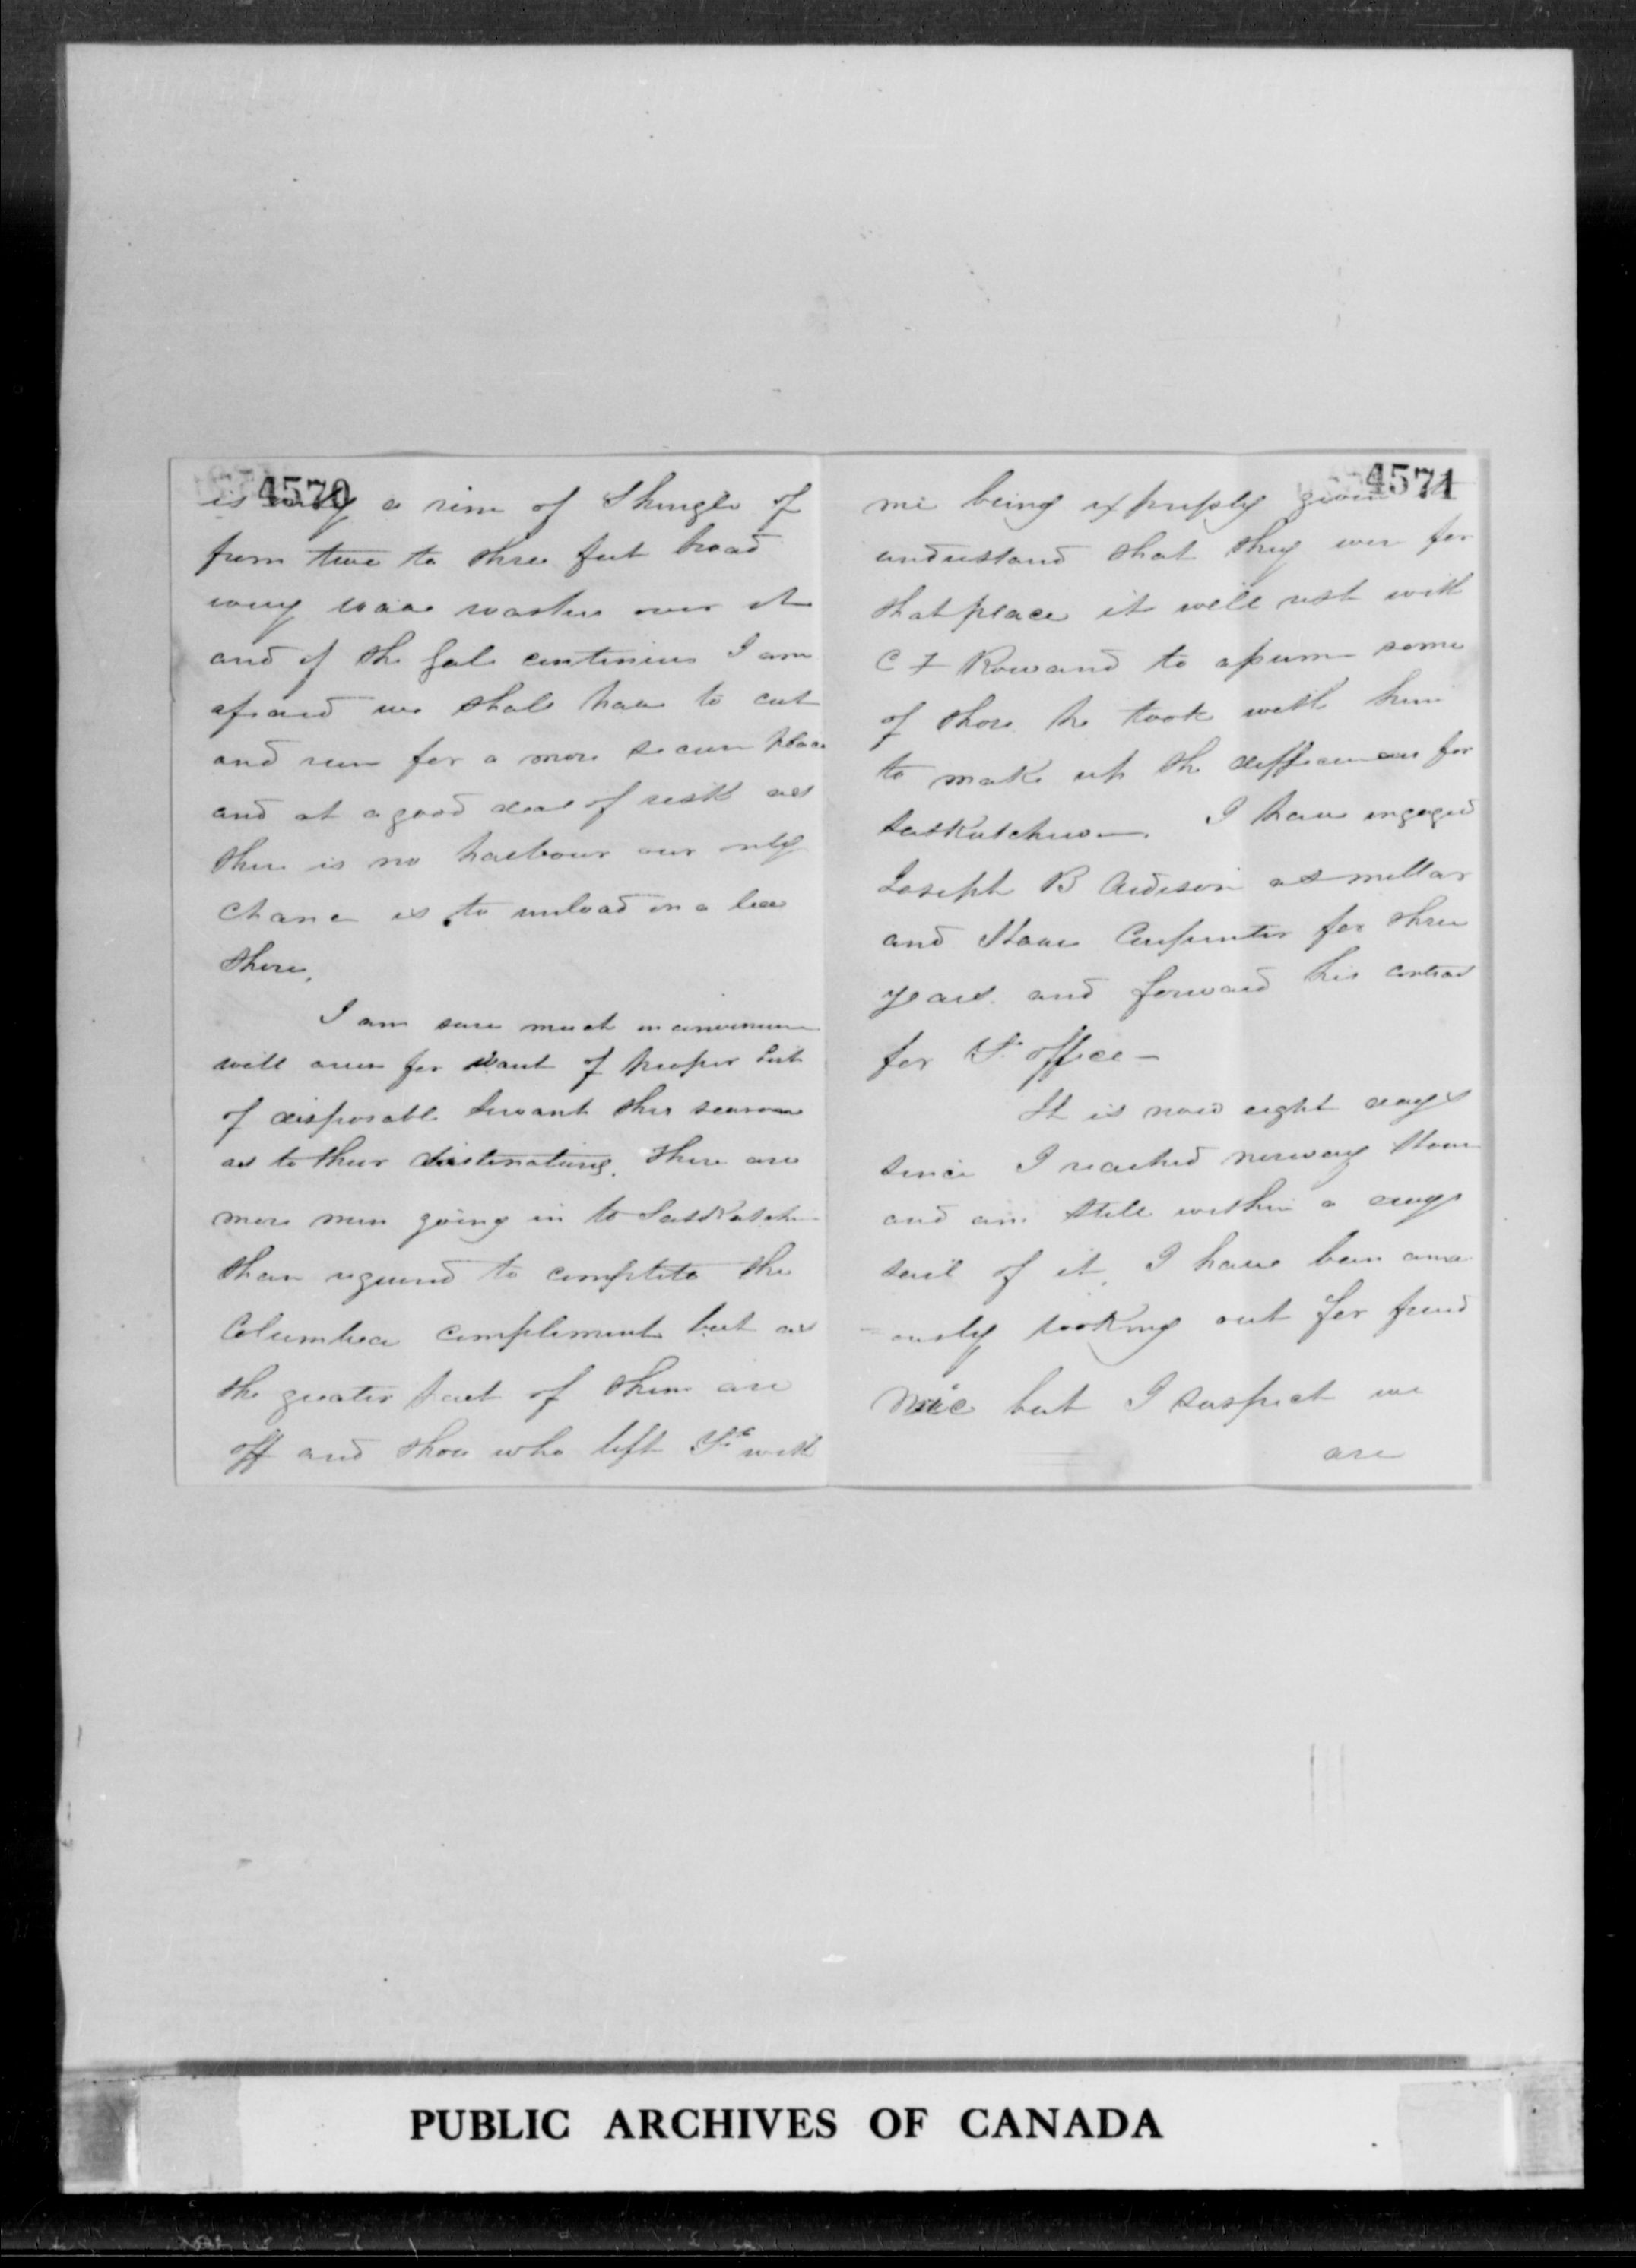 4570
is only a rim of Shingle of
from two to three feet broad
every wave washes over it
and if the Gale continues I am
afraid we shall have to cut
and run for a more secure place
and at a good deal of risk as
there is no harbour our only
chance is to unload on a lee
shore.
I am sure much inconvenience
will arise for want of proper List
of disposable Servants this season
as to their destinations. There are
more men going in to Saskatchn
than required to complete the
Columbia compliment but as
the greater part of them are
off and those who left Y.F. with
4571
me being expressly given to
understand that they were for
that place it will rest with
C F Rowand to assume some
of those he took with him
to make up the difference for
Saskatchewan. I have engaged
Joseph B as millar
and House Carpenter for three
years and forward his contract
for Y.F. office —
It is now eight days
since I reached Norway House
and am still within a days
sail of it, I have been anxi
=ously looking out for friend
but I suspect we
are
PUBLIC ARCHIVES OF CANADA